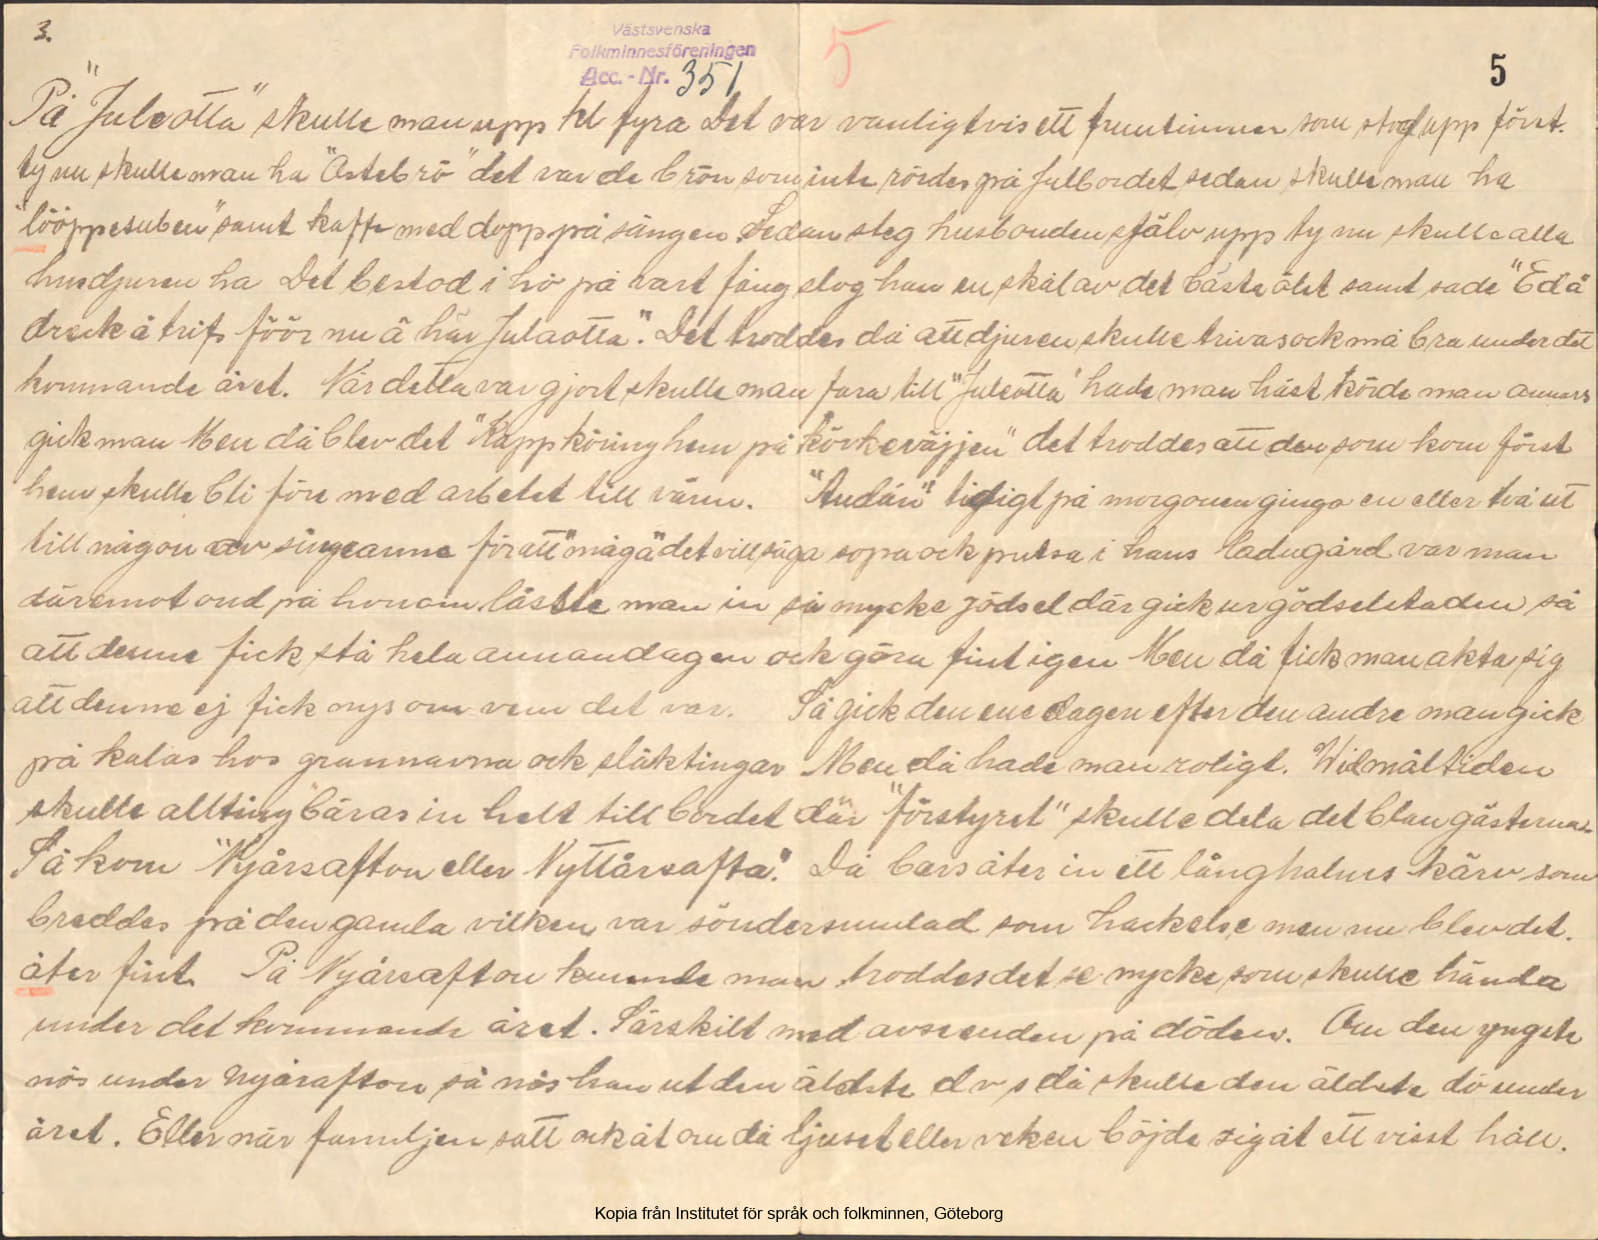 3.
Västsvenska
Folkminnesföreningen
Acc. - Nr. 351
5
5
På "Juleotta" skulle man upp kl fyra Det var vanligtvis ett fruntimmer som stog upp först.
ty nu skulle man ha "Ostebrö" det var de brön som inte rördes på Julbordet sedan skulle man ha
"lööppesuben" samt kaffe med dopp på sängen. Sedan steg husbonden själv upp ty nu skulle alla
husdjuren ha Det bestod i hö på vart fång slog han en skål av det bästa ölet samt sade "Ed å
dreck å trifs föör nu ä här Julaotta". Det troddes då att djuren skulle trivas ock må bra under det
kommande året. När detta var gjort skulle man fara till "Juleotta" hade man häst körde man annars
gick man Men då blev det "Kappköring hem på körkeväjjen" det troddes att den som kom först
hem skulle bli före med arbetet till våren. "Andán" tidigt på morgonen gingo en eller två ut
till någon av singeanna för att "mågä" det vill säga sopa ock putsa i hans ladugård var man
däremot ond på honom låste man in så mycke gödsel där gick ur gödselstaden så
att denne fick stå hela annandagen ock göra fint igen Men då fick man akta sig
att denne ej fick nys om vem det var. Så gick den ene dagen efter den andre man gick
på kalas hos grannarna ock släktingar Men då hade man roligt. Wid måltiden
skulle allting bäras in helt till bordet där "förstyret" skulle dela det blan gästerna.
Så kom "Nyårsafton eller Nyttårsafta". Då bars åter in ett långhalms kärv som
breddes på den gamla vilken var söndersmulad som hackelse men nu blev det.
åter fint. På Nyårsafton kunnde man troddes det se mycke som skulle hända
under det kommande året. Särskilt med avseenden på döden. Om den yngste
nös under Nyårafton så nös han ut den äldste d v s då skulle den äldste dö under
året. Eller när familjen satt ock åt om då ljuset eller veken böjde sig åt ett visst håll.
Kopia från Institutet för språk och folkminnen, Göteborg